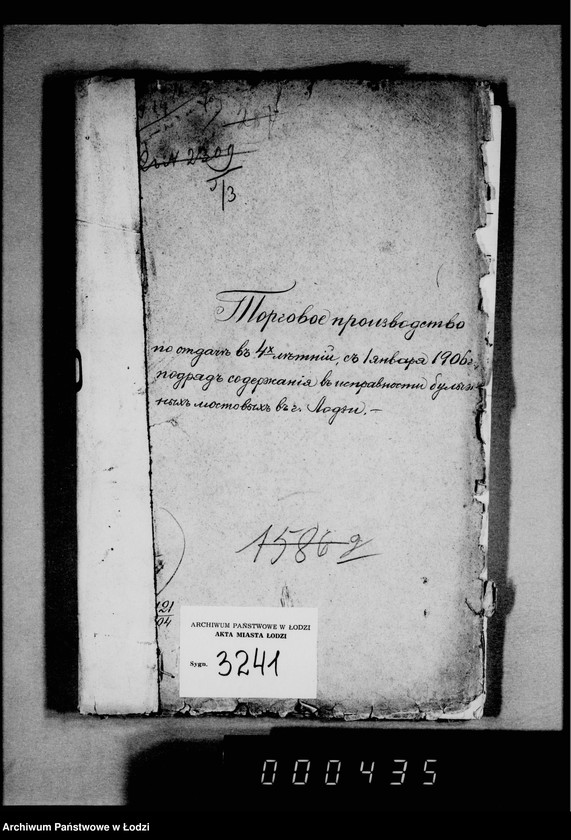 2709
3
Торговое производство
по отдачѣ въ 4х лѣтній, съ 1 января 1906 г.,
подрядъ содержанія въ исправности булыж-
ныхъ мостовыхъ въ г. Лодзи. —
1586 д
121
04
ARCHIWUM PAŃSTWOWE W ŁODZI
AKTA MIASTA ŁODZI
Sygn. 3241
000435
Archiwum Państwowe w Łodzi